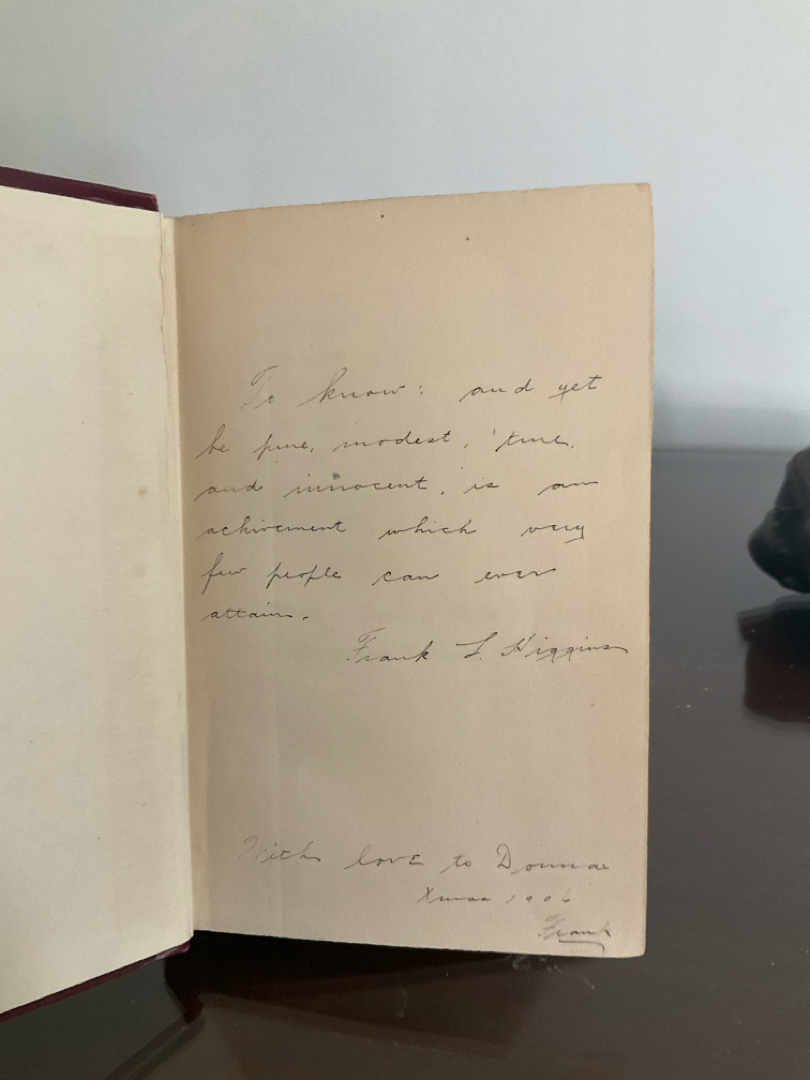 To know: and yet
be pure, modest, true,
and innocent, is an
achivement which very
few people can ever
attain.
Frank L. Higgins
With love to Donna
Xmas 1906
Frank